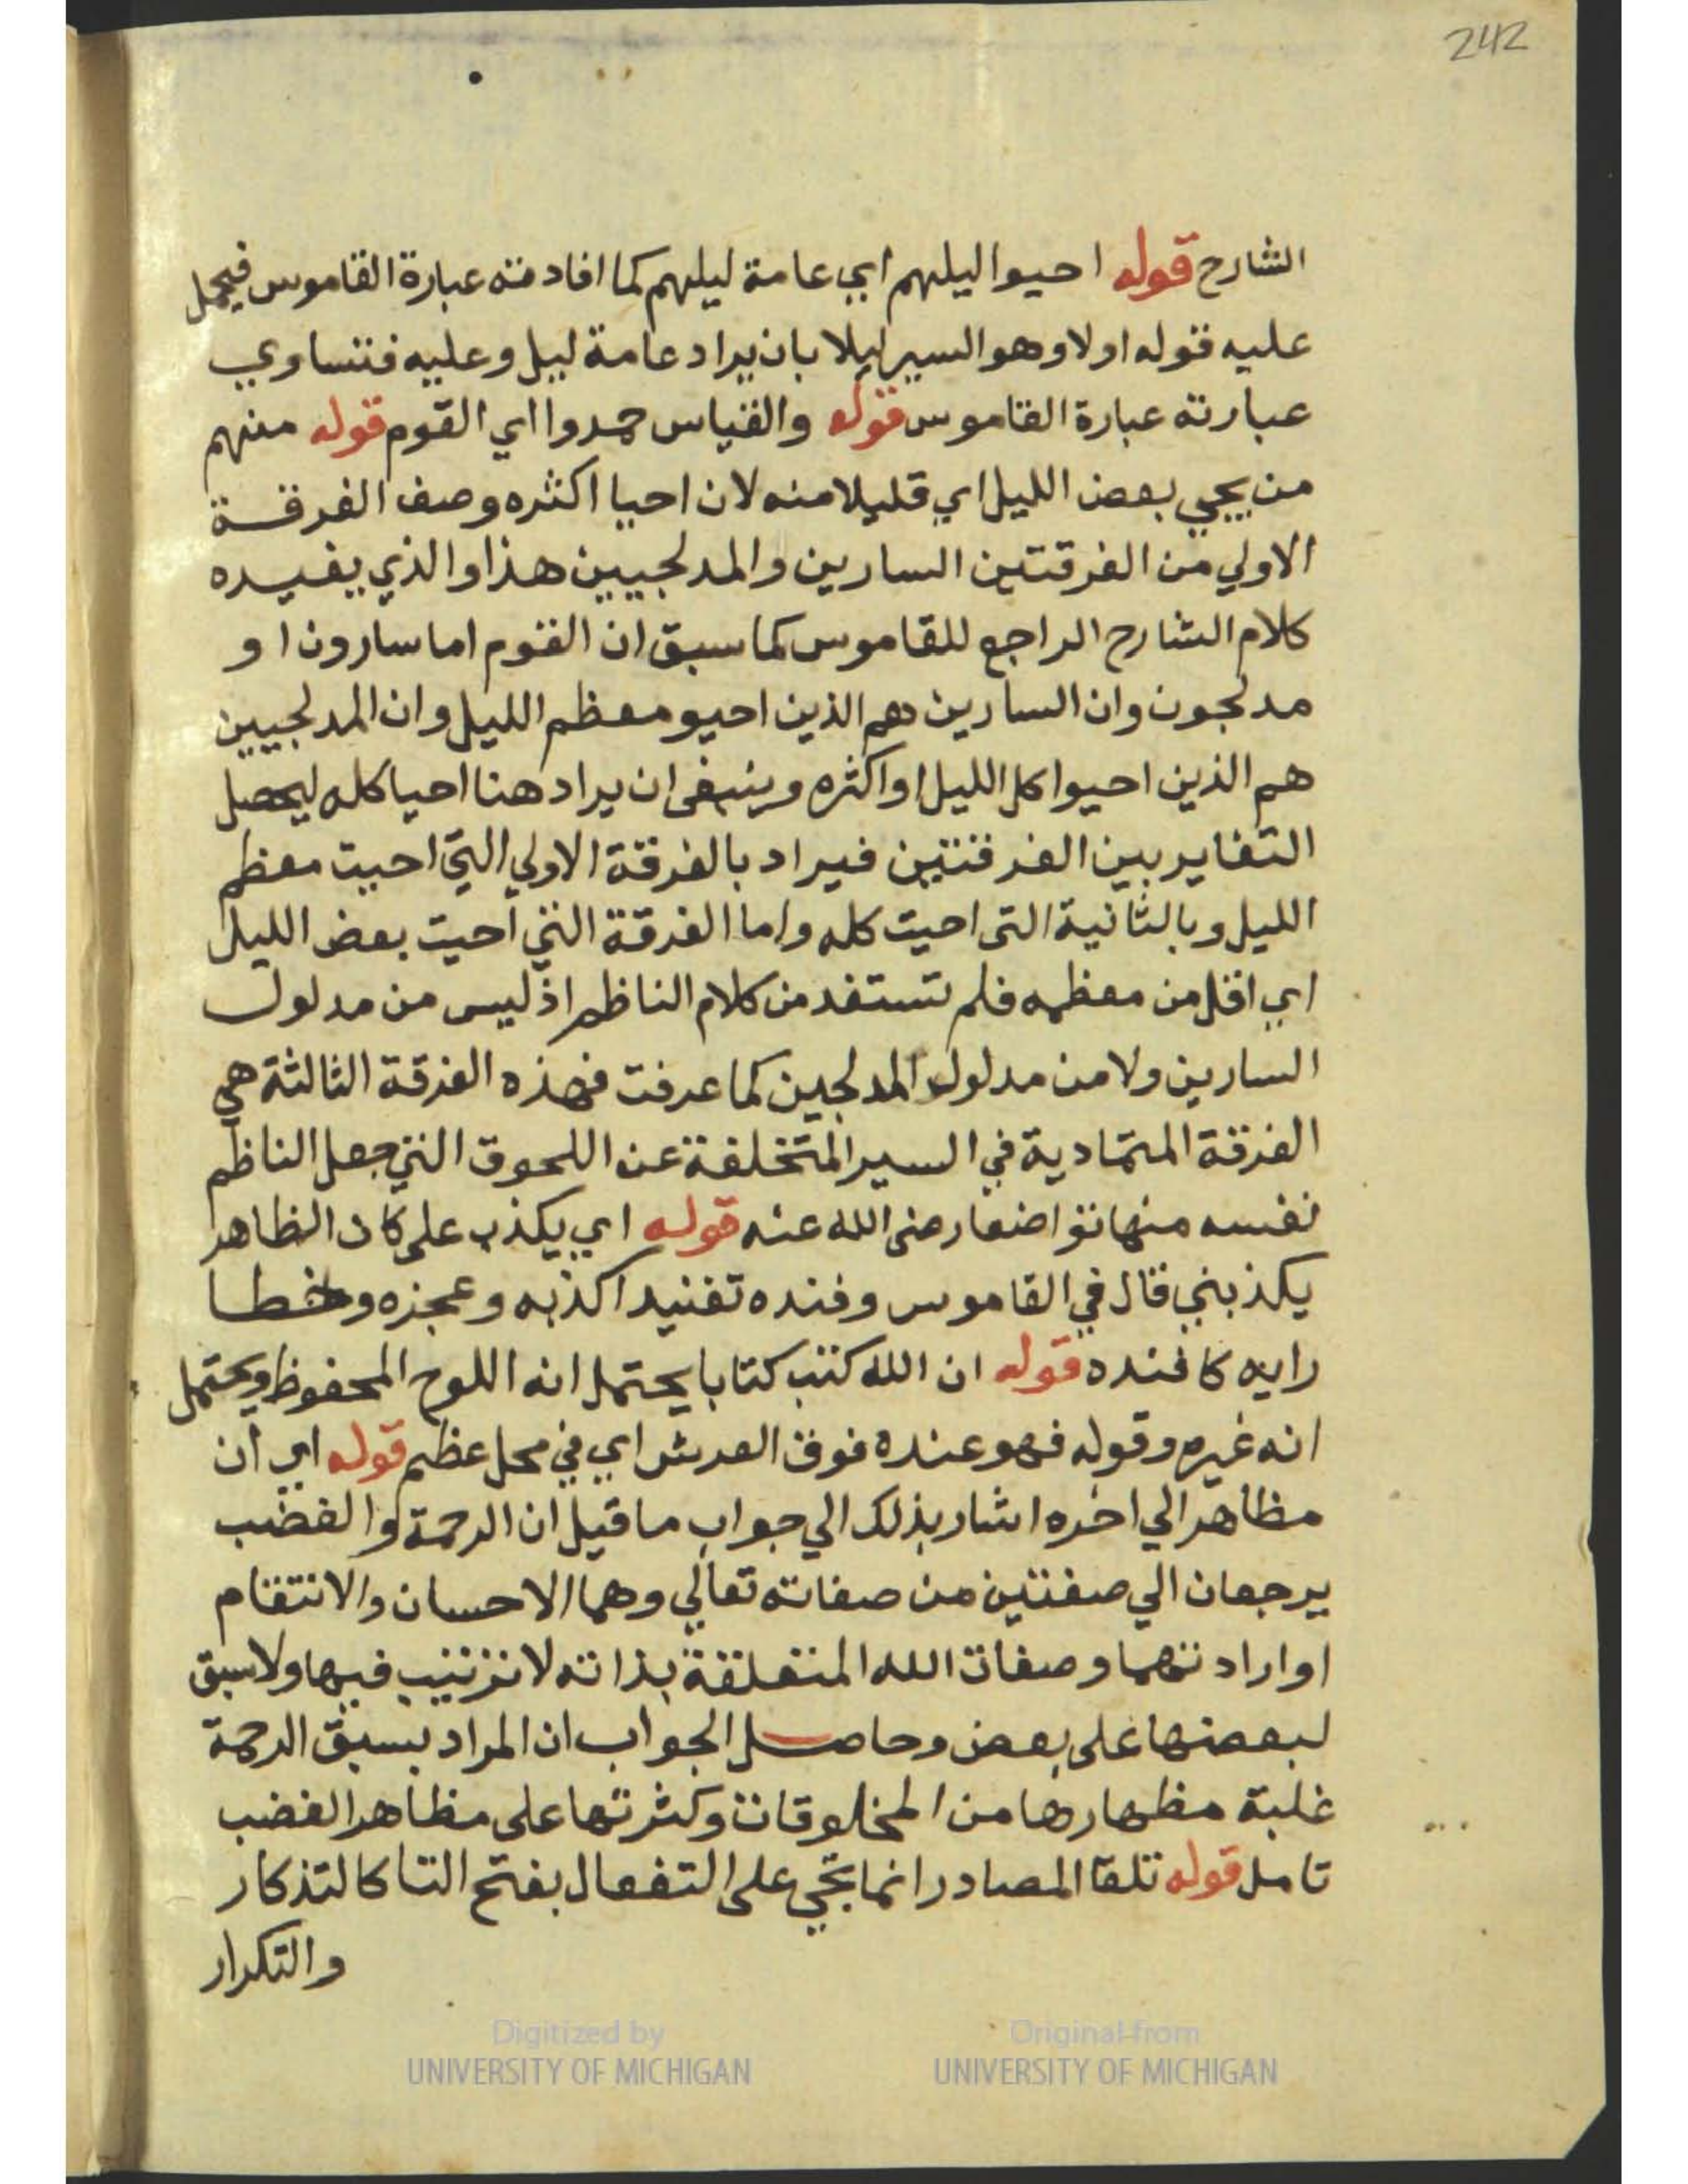 242
الشارح قوله احيوا ليلهم اي عامة ليلهم كما افادته عبارة القاموس فيحمل
عليه قوله اولا وهو السير ليلا بان يراد عامة ليل وعليه فتتساوي
عبارته عبارة القاموس قوله والقياس حمدوا اي القوم قوله منهم
من يحيي بعض الليل اي قليلا منه لان احيا اكثره وصف الفرقة
الاولي من الفرقتين السارين والمدلجيين هذا والذي يفيده
كلام الشارح الراجع للقاموس كما سبق ان القوم اما سارون او
مدلجون وان السارين هم الذين احيو معظم الليل وان المدلجيين
هم الذين احيوا كل الليل او اكثره وينبغي ان يراد هنا احيا كله ليحصل
التغاير بين الفرقتين فيراد بالفرقة الاولي التي احيت معظم
الليل وبالثانية التي احيت كله واما الفرقة التي احيت بعض الليل
اي اقل من معظمه فلم تستفد من كلام الناظم اذ ليس من مدلول
السارين ولا من مدلول المدلجين كما عرفت فهذه الفرقة الثالثة هي
الفرقة المتمادية في السير المتخلفة عن اللحوق التي جعل الناظم
نفسه منها تواضعا رضي الله عنه قوله اي يكذب علي كان الظاهر
يكذبني قال في القاموس وفنده تفنيدا كذبه وعجزه وخطا
رايه كافنده قوله ان الله كتب كتابا يحتمل انه اللوح المحفوظ ويحتمل
انه غيره وقوله فهو عنده فوق العرش اي في محل عظيم قوله اي ان
مظاهر الي اخره اشار بذلك الي جواب ما قيل ان الرحمة والغضب
يرجعان الي صفتين من صفاته تعالي وهما الاحسان والانتقام
او ارادتهما وصفات الله المتعلقة بذاته لا ترتيب فيها ولا سبق
لبعضها على بعض وحاصل الجواب ان المراد بسبق الرحمة
غلبة مظهارها من المخلوقات وكثرتها على مظاهر الغضب
تامل قوله تلقا المصادر انما تجي على التفعال بفتح التا كالتذكار
والتكرار
Digitized by
UNIVERSITY OF MICHIGAN
Original from
UNIVERSITY OF MICHIGAN